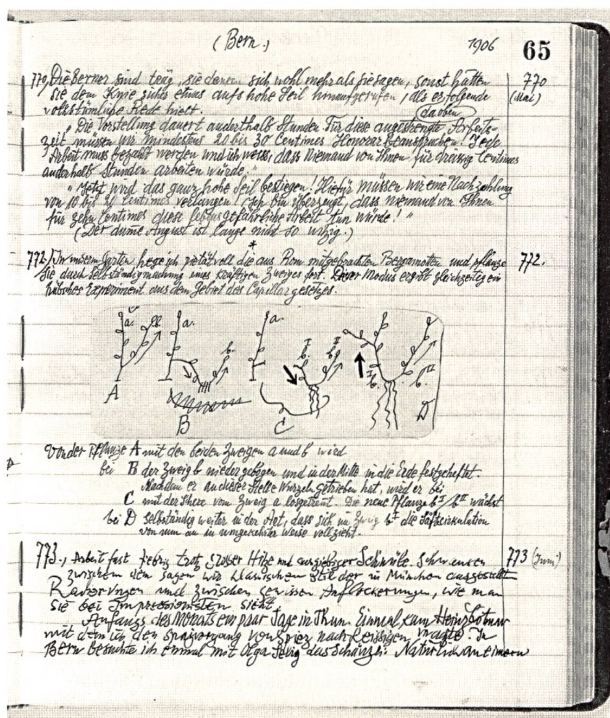 (Bern.) 1906 65
770, Die Berner sind träg, sie denken sich wohl mehr als sie sagen, sonst hätten 770
sie dem Knie nichts etwas aufs hohe Seil hinaufgerufen, als er folgende (Mai)
volkstümliche Rede hielt. da oben
"Die Vorstellung dauert anderthalb Stunden Für diese angestrengte Arbeits-
zeit müssen wir mindestens 20 bis 30 Centimes Honorar beanspruchen. Jede
Arbeit muss bezahlt werden und ich weiss, dass Niemand von Ihnen für dreissig Centimes
anderthalb Stunden arbeiten würde."
"Jetzt wird das ganz hohe Seil bestiegen! Hiefür müssen wir eine Nachzahlung
von 10 bis 20 Centimes verlangen! Ich bin überzeugt, dass niemand von Ihnen
für zehn Centimes diese lebensgefährliche Arbeit tun würde!"
(Der dumme August ist lange nicht so witzig.)
772, In unserm Garten hege ich pietätvoll die aus Rom mitgebrachten Bergamotten und pflanze 772.
sie durch Selbständigmachung eines kräftigen Zweiges fort. Dieser Modus ergibt gleichzeitig ein
hübsches Experiment aus dem Gebiet des Capillargesetzes.
a. b. a. b. a. I b. II b. I b. II b.
A B C D
Von der Pflanze A mit den beiden Zweigen a und b wird
bei B der Zweig b niedergebogen und in der Mitte in die Erde festgeheftet.
Nachdem er an dieser Stelle Wurzeln getrieben hat, wird er bei
C mit der Schere vom Zweig a losgetrennt. Die neue Pflanze b I b II wächst
bei D selbständig weiter in der Art, dass sich im Zweig b I die Saftcirculation
von nun an in umgekehrter Weise vollzieht.
773., Arbeit fast fiebrig trotz grosser Hitze und ausgiebiger Schwüle. Schwanken 773 (Juni)
zwischen dem sagen wir klassischen Stil der in München ausgestellten
Radierungen und zwischen gewissen Auflockerungen, wie man
sie bei Impressionisten sieht.
Anfangs des Monats ein paar Tage in Thun Einmal kam Heinz Lotmar
mit dem ich den Spaziergang von Spiez nach Leissigen machte. In
Bern besuchte ich einmal mit Olga das Schänzli. Natürlich an einem